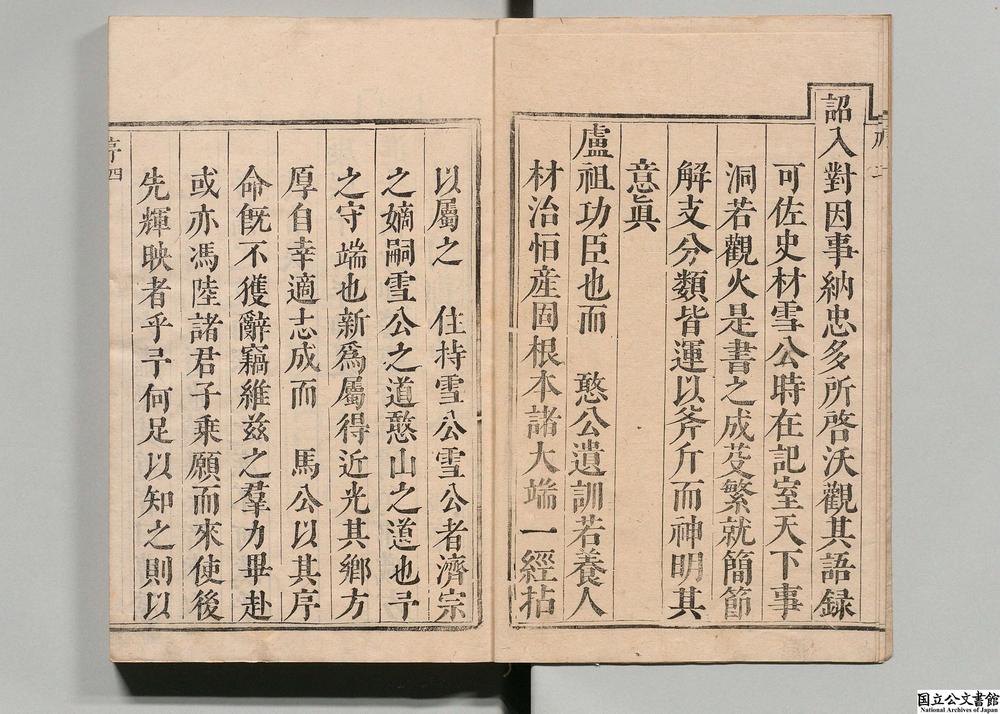 詔入對因事納忠多所啓沃觀其語録
可佐史材雪公時在記室天下事
洞若觀火是書之成芟繁就簡節
解支分類皆運以斧斤而神明其
意眞
盧祖功臣也而 憨公遺訓若養人
材治恒産固根本諸大端一經拈
以屬之 住持雪公雪公者濟宗
之嫡嗣雪公之道憨山之道也予
之守端也新爲屬得近光其鄉方
厚自幸適志成而 馬公以其序
命旣不獲辭竊維兹之羣力畢赴
或亦馮陸諸君子乗願而來使後
先輝映者乎予何足以知之則以
序四
国立公文書館
National Archives of Japan